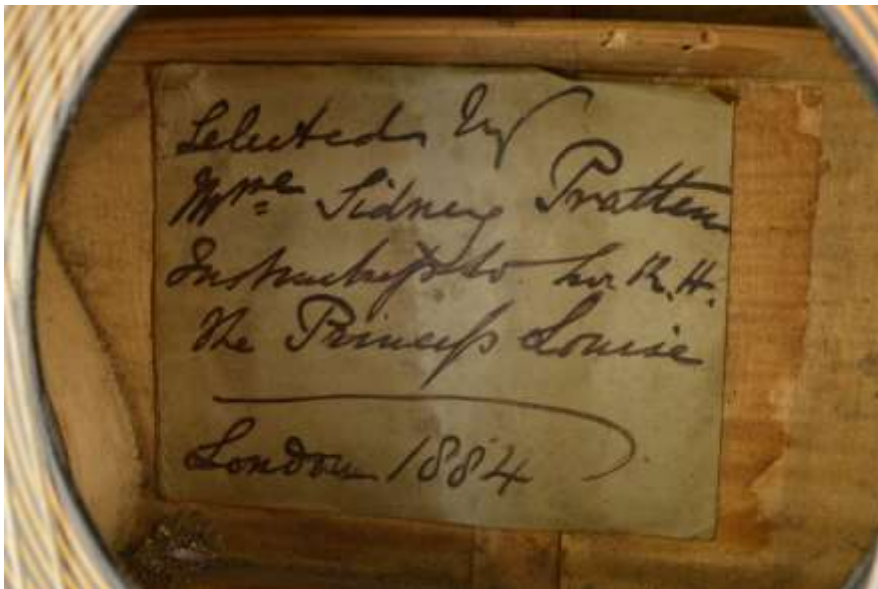 Selected by
Mme Sidney Pratten
Instructress to her R. H.
The Princess Louise
London 1884